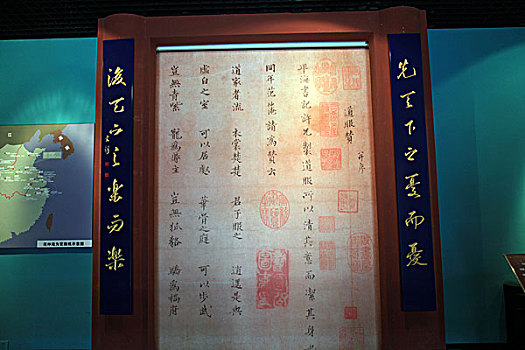 先天下之憂而憂
道服贊 并序
平海書記許兄製道服所以清其意而潔其身
同年范請為贊云
道家者流 衣裳楚楚 君子服之 逍遙是與
虛白之室 可以居處 華胥之庭 可以步武
豈無青紫 寵為辱主 豈無狐貉 驕為禍府
後天下之樂而樂
范仲淹为官路线示意图